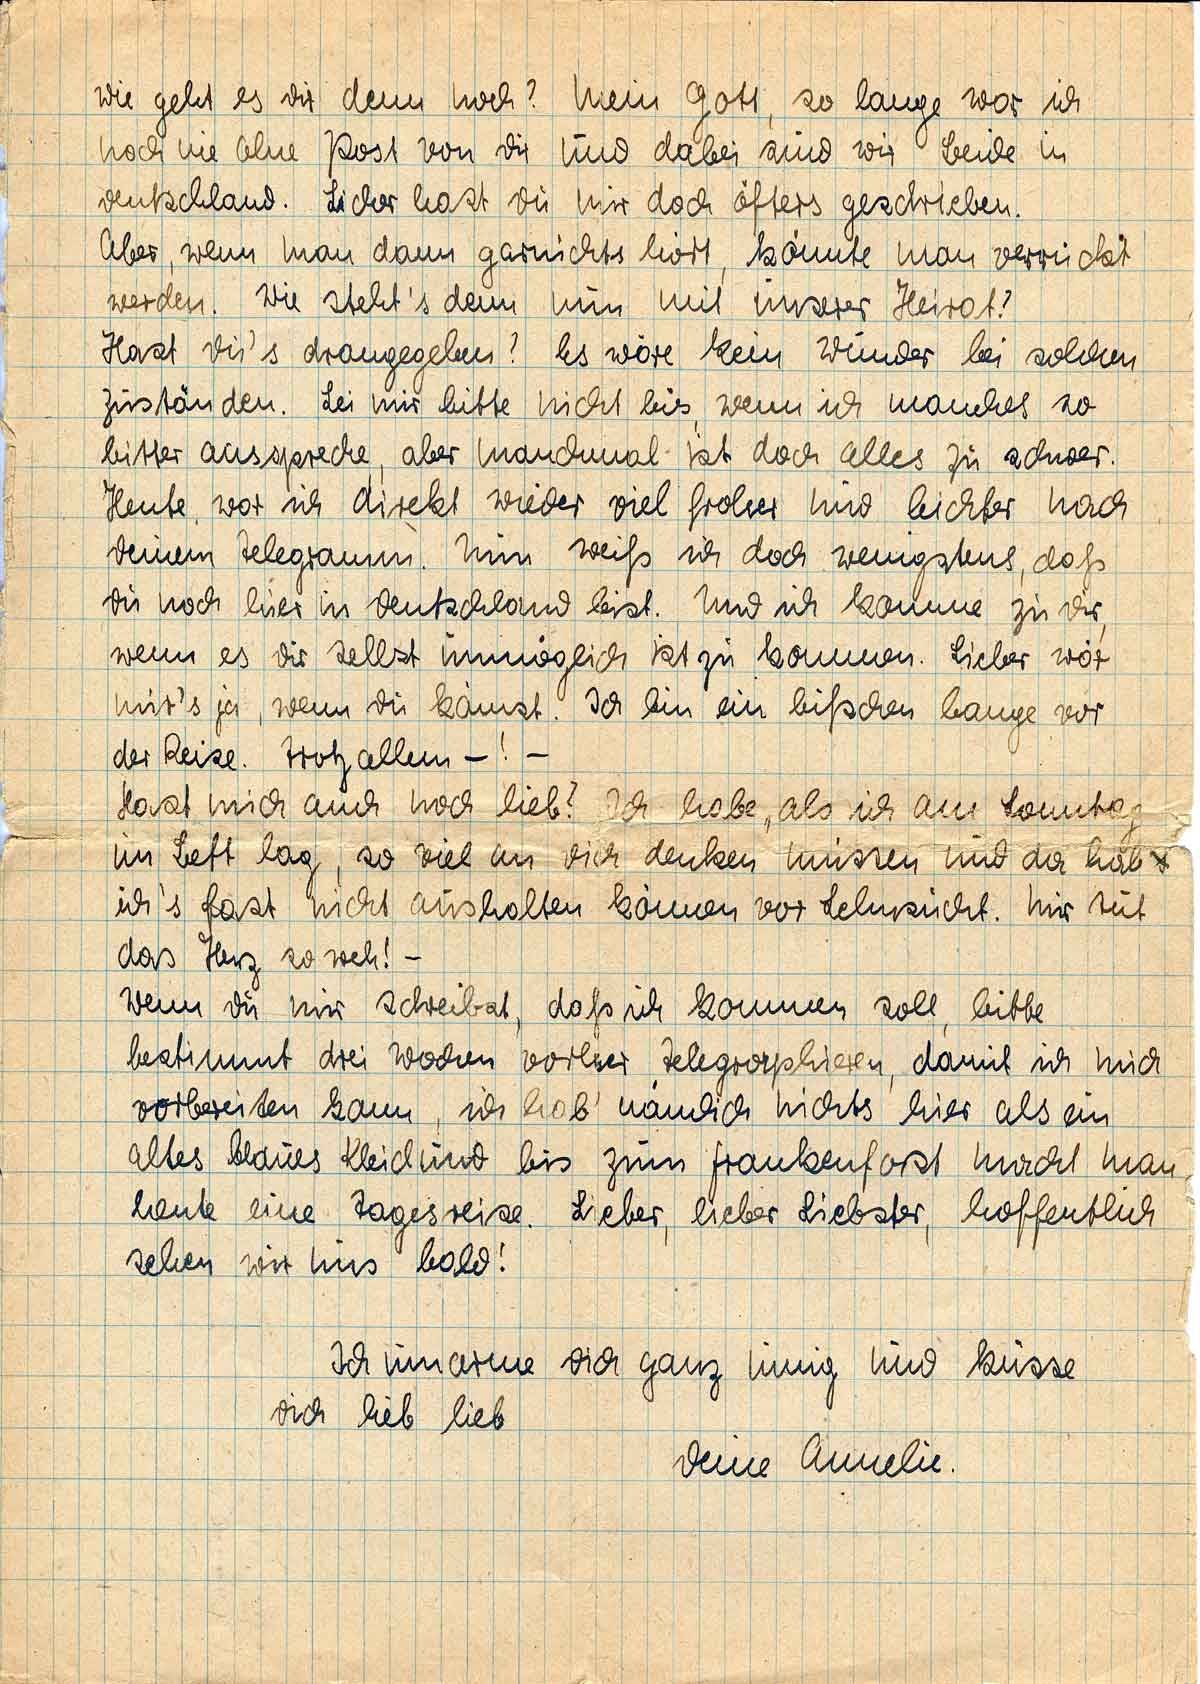 Wie geht es Dir denn noch? Mein Gott, so lange war ich
noch nie ohne Post von Dir und dabei sind wir beide in
Deutschland. Sicher hast Du mir doch öfters geschrieben.
Aber, wenn man dann garnichts hört, könnte man verrückt
werden. Wie steht's denn nun mit unserer Heirat?
Hast Du's drangegeben? Es wäre kein Wunder bei solchen
Zuständen. Sei mir bitte nicht bös, wenn ich manches so
bitter ausspreche, aber manchmal ist doch alles zu schwer.
Heute, war ich direkt wieder viel froher und leichter nach
Deinem Telegramm. Nun weiß ich doch wenigstens, daß
Du noch hier in Deutschland bist. Und ich komme zu Dir,
wenn es Dir selbst unmöglich ist zu kommen. Lieber wär
mir's ja, wenn Du kämst. Ich bin ein bißchen bange vor
der Reise. Trotz allem – ! –
Hast mich auch noch lieb? Ich habe, als ich am Sonntag
im Bett lag, so viel an Dich denken müssen und da hab
ich's fast nicht aushalten können vor Sehnsucht. Mir tut
das Herz so weh! –
Wenn Du mir schreibst, daß ich kommen soll, bitte
bestimmt drei Wochen vorher telegraphieren, damit ich mich
vorbereiten kann, ich hab' nämlich nichts hier als ein
altes blaues Kleid und bis zum Frankenforst macht man
heute eine Tagesreise. Lieber, lieber Liebster, hoffentlich
sehen wir uns bald!
Ich umarme Dich ganz innig und küsse
Dich lieb lieb
Deine Annelie.